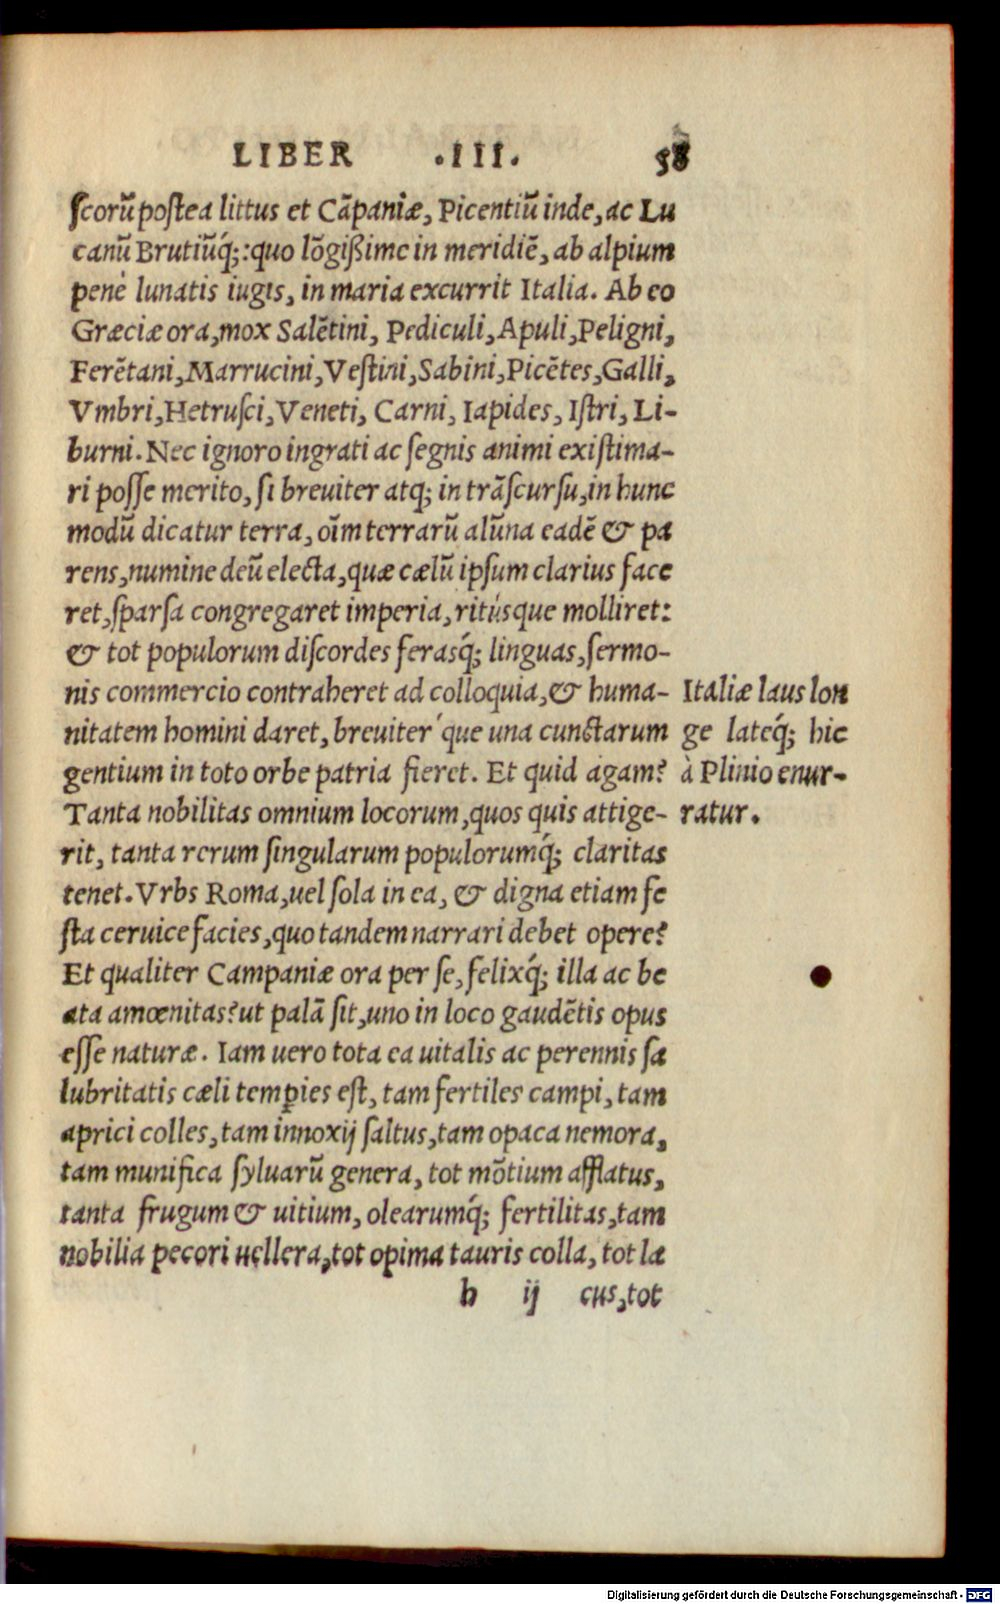 LIBER .III. 58
scorũ postea littus et Cãpaniæ, Picentiũ inde, ac Lu
canũ Brutiũq́;: quo lõgißime in meridiẽ, ab alpium
penè lunatis iugis, in maria excurrit Italia. Ab eo
Græciæ ora, mox Salẽtini, Pediculi, Apuli, Peligni,
Ferẽtani, Marrucini, Vestini, Sabini, Picẽtes, Galli,
Vmbri, Hetrusci, Veneti, Carni, Iapides, Istri, Li-
burni. Nec ignoro ingrati ac segnis animi existima-
ri posse merito, si breuiter atq; in trãscursu, in hunc
modũ dicatur terra, oĩm terrarũ alũna eadẽ & pa
rens, numine deũ electa, quæ cælũ ipsum clarius face
ret, sparsa congregaret imperia, ritúsque molliret:
& tot populorum discordes ferasq́; linguas, sermo-
nis commercio contraheret ad colloquia, & huma-
nitatem homini daret, breuiter´que una cunctarum
gentium in toto orbe patria fieret. Et quid agam?
Tanta nobilitas omnium locorum, quos quis attige-
rit, tanta rerum singularum populorumq́; claritas
tenet. Vrbs Roma, uel sola in ea, & digna etiam fe
sta ceruice facies, quo tandem narrari debet opere?
Et qualiter Campaniæ ora per se, felixq́; illa ac be
ata amœnitas? ut palã sit, uno in loco gaudẽtis opus
esse naturæ. Iam uero tota ea uitalis ac perennis sa
lubritatis cæli temp̱ies est, tam fertiles campi, tam
aprici colles, tam innoxij saltus, tam opaca nemora,
tam munifica syluarũ genera, tot mõtium afflatus,
tanta frugum & uitium, olearumq́; fertilitas, tam
nobilia pecori uellera, tot opima tauris colla, tot la
h ij cus, tot
Italiæ laus lon
ge lateq́; hic
à Plinio enur-
ratur.
Digitalisierung gefördert durch die Deutsche Forschungsgemeinschaft - DFG